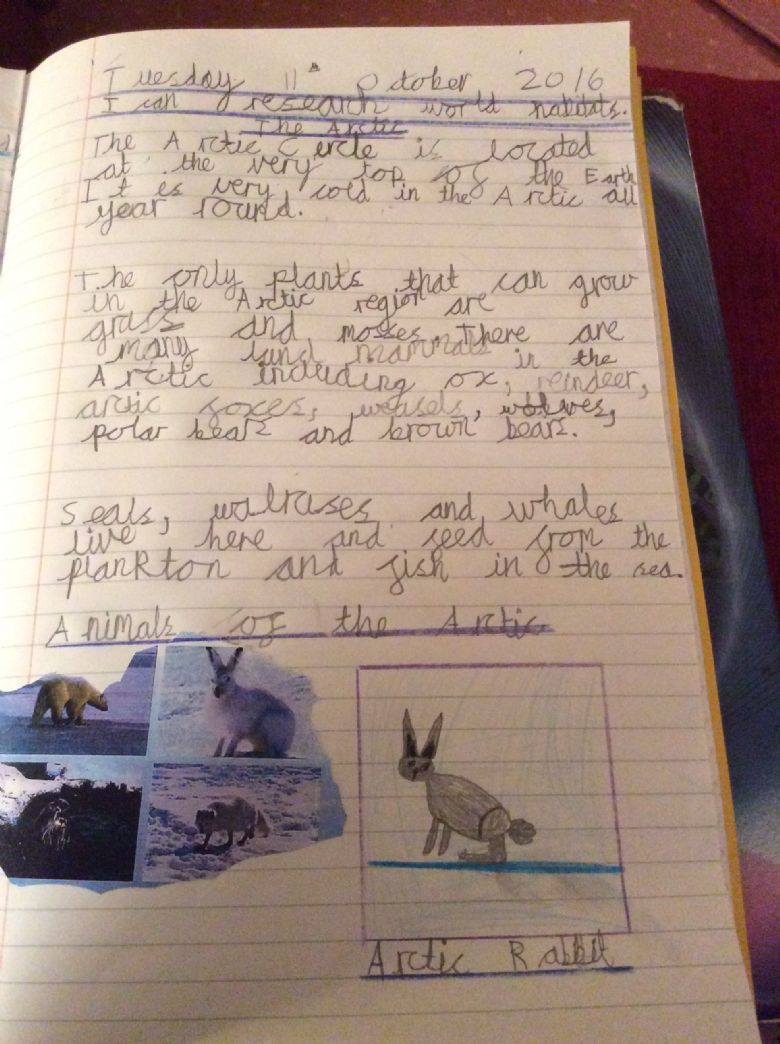 Tuesday 11th October 2016
I can research world habitats.
The Arctic
The Arctic Circle is located
at the very top of the Earth
It is very cold in the Arctic all
year round.
The only plants that can grow
in the Arctic region are
grass and mosses. There are
many land mammals in the
Arctic including ox, reindeer,
arctic foxes, weasels, wolves,
polar bears and brown bears.
Seals, walruses and whales
live here and feed from the
plankton and fish in the sea.
Animals of the Arctic
Arctic Rabbit